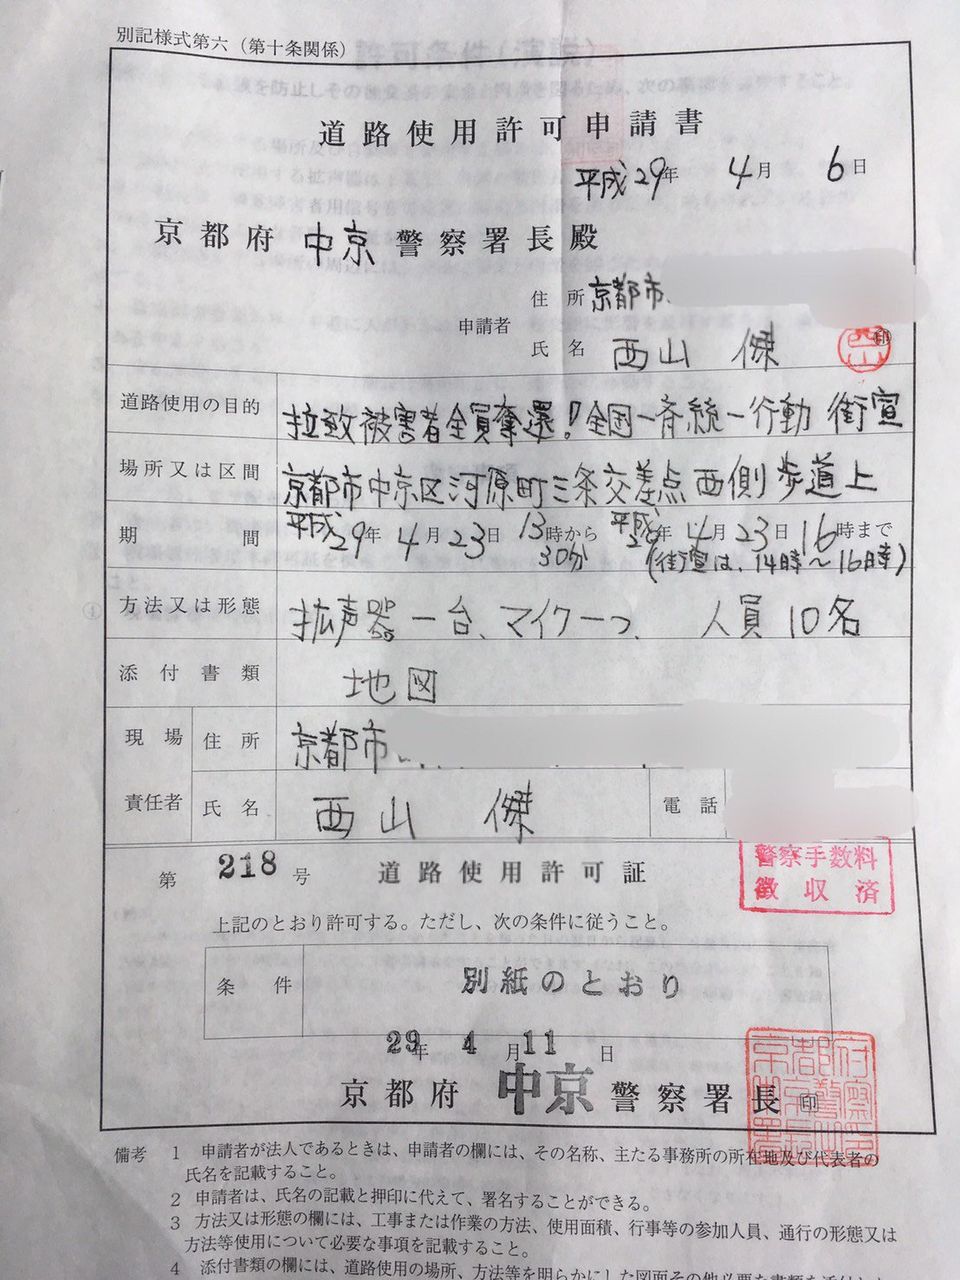 別記様式第六（第十条関係）
道路使用許可申請書
平成29年 4月 6日
京都府 中京 警察署長殿
住所 京都市
申請者
氏名 西山 傑 印
道路使用の目的 拉致被害者全員奪還！全国一斉統一行動 街宣
場所又は区間 京都市中京区河原町三条交差点西側歩道上
期間 平成29年 4月23日 13時から 平成29年 4月23日 16時まで
30分 (街宣は、14時～16時)
方法又は形態 拡声器一台、マイク一つ、 人員10名
添付書類 地図
現場 住所 京都市
責任者 氏名 西山 傑 電話
警察手数料
徴収済
第 218 号 道路使用許可証
上記のとおり許可する。ただし、次の条件に従うこと。
条件 別紙のとおり
29年 4月11日
京都府 中京 警察署長 印
備考 1 申請者が法人であるときは、申請者の欄には、その名称、主たる事務所の所在地及び代表者の
氏名を記載すること。
2 申請者は、氏名の記載と押印に代えて、署名することができる。
3 方法又は形態の欄には、工事または作業の方法、使用面積、行事等の参加人員、通行の形態又は
方法等使用について必要な事項を記載すること。
4 添付書類の欄には、道路使用の場所、方法等を明らかにした図面その他必要な書類を添付